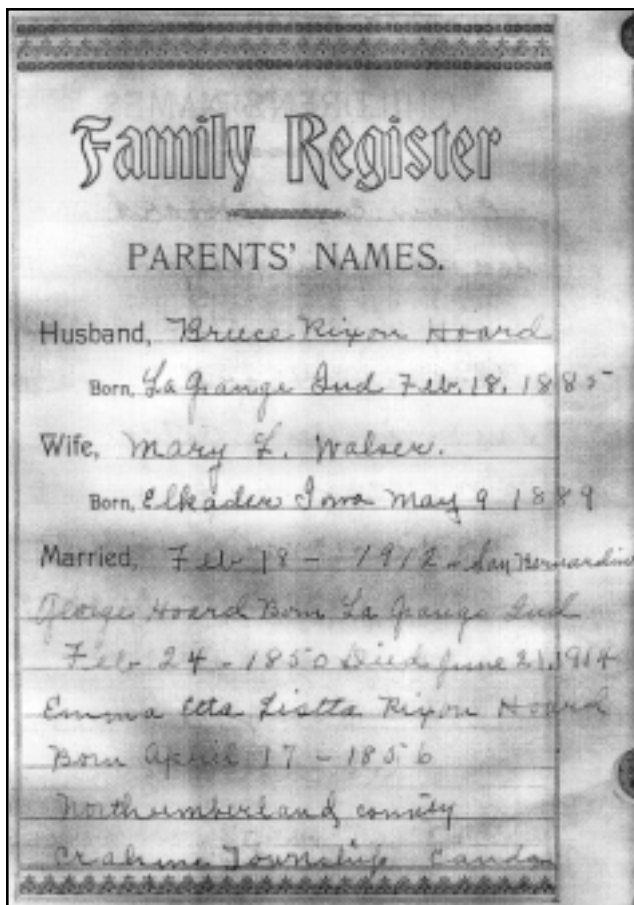 Family Register
PARENTS' NAMES.
Husband, Bruce Rixon Hoard
Born, La Grange Ind Feb. 18. 1885
Wife, Mary L. Walser.
Born, Elkader Iowa May 9 1889
Married, Feb 18 - 1912 - San Bernardino
George Hoard Born La Grange Ind
Feb 24 - 1850 Died June 21, 1914
Emma Etta Rixon Hoard
Born April 17 - 1856
Northumberland county
Crahme Township Candor